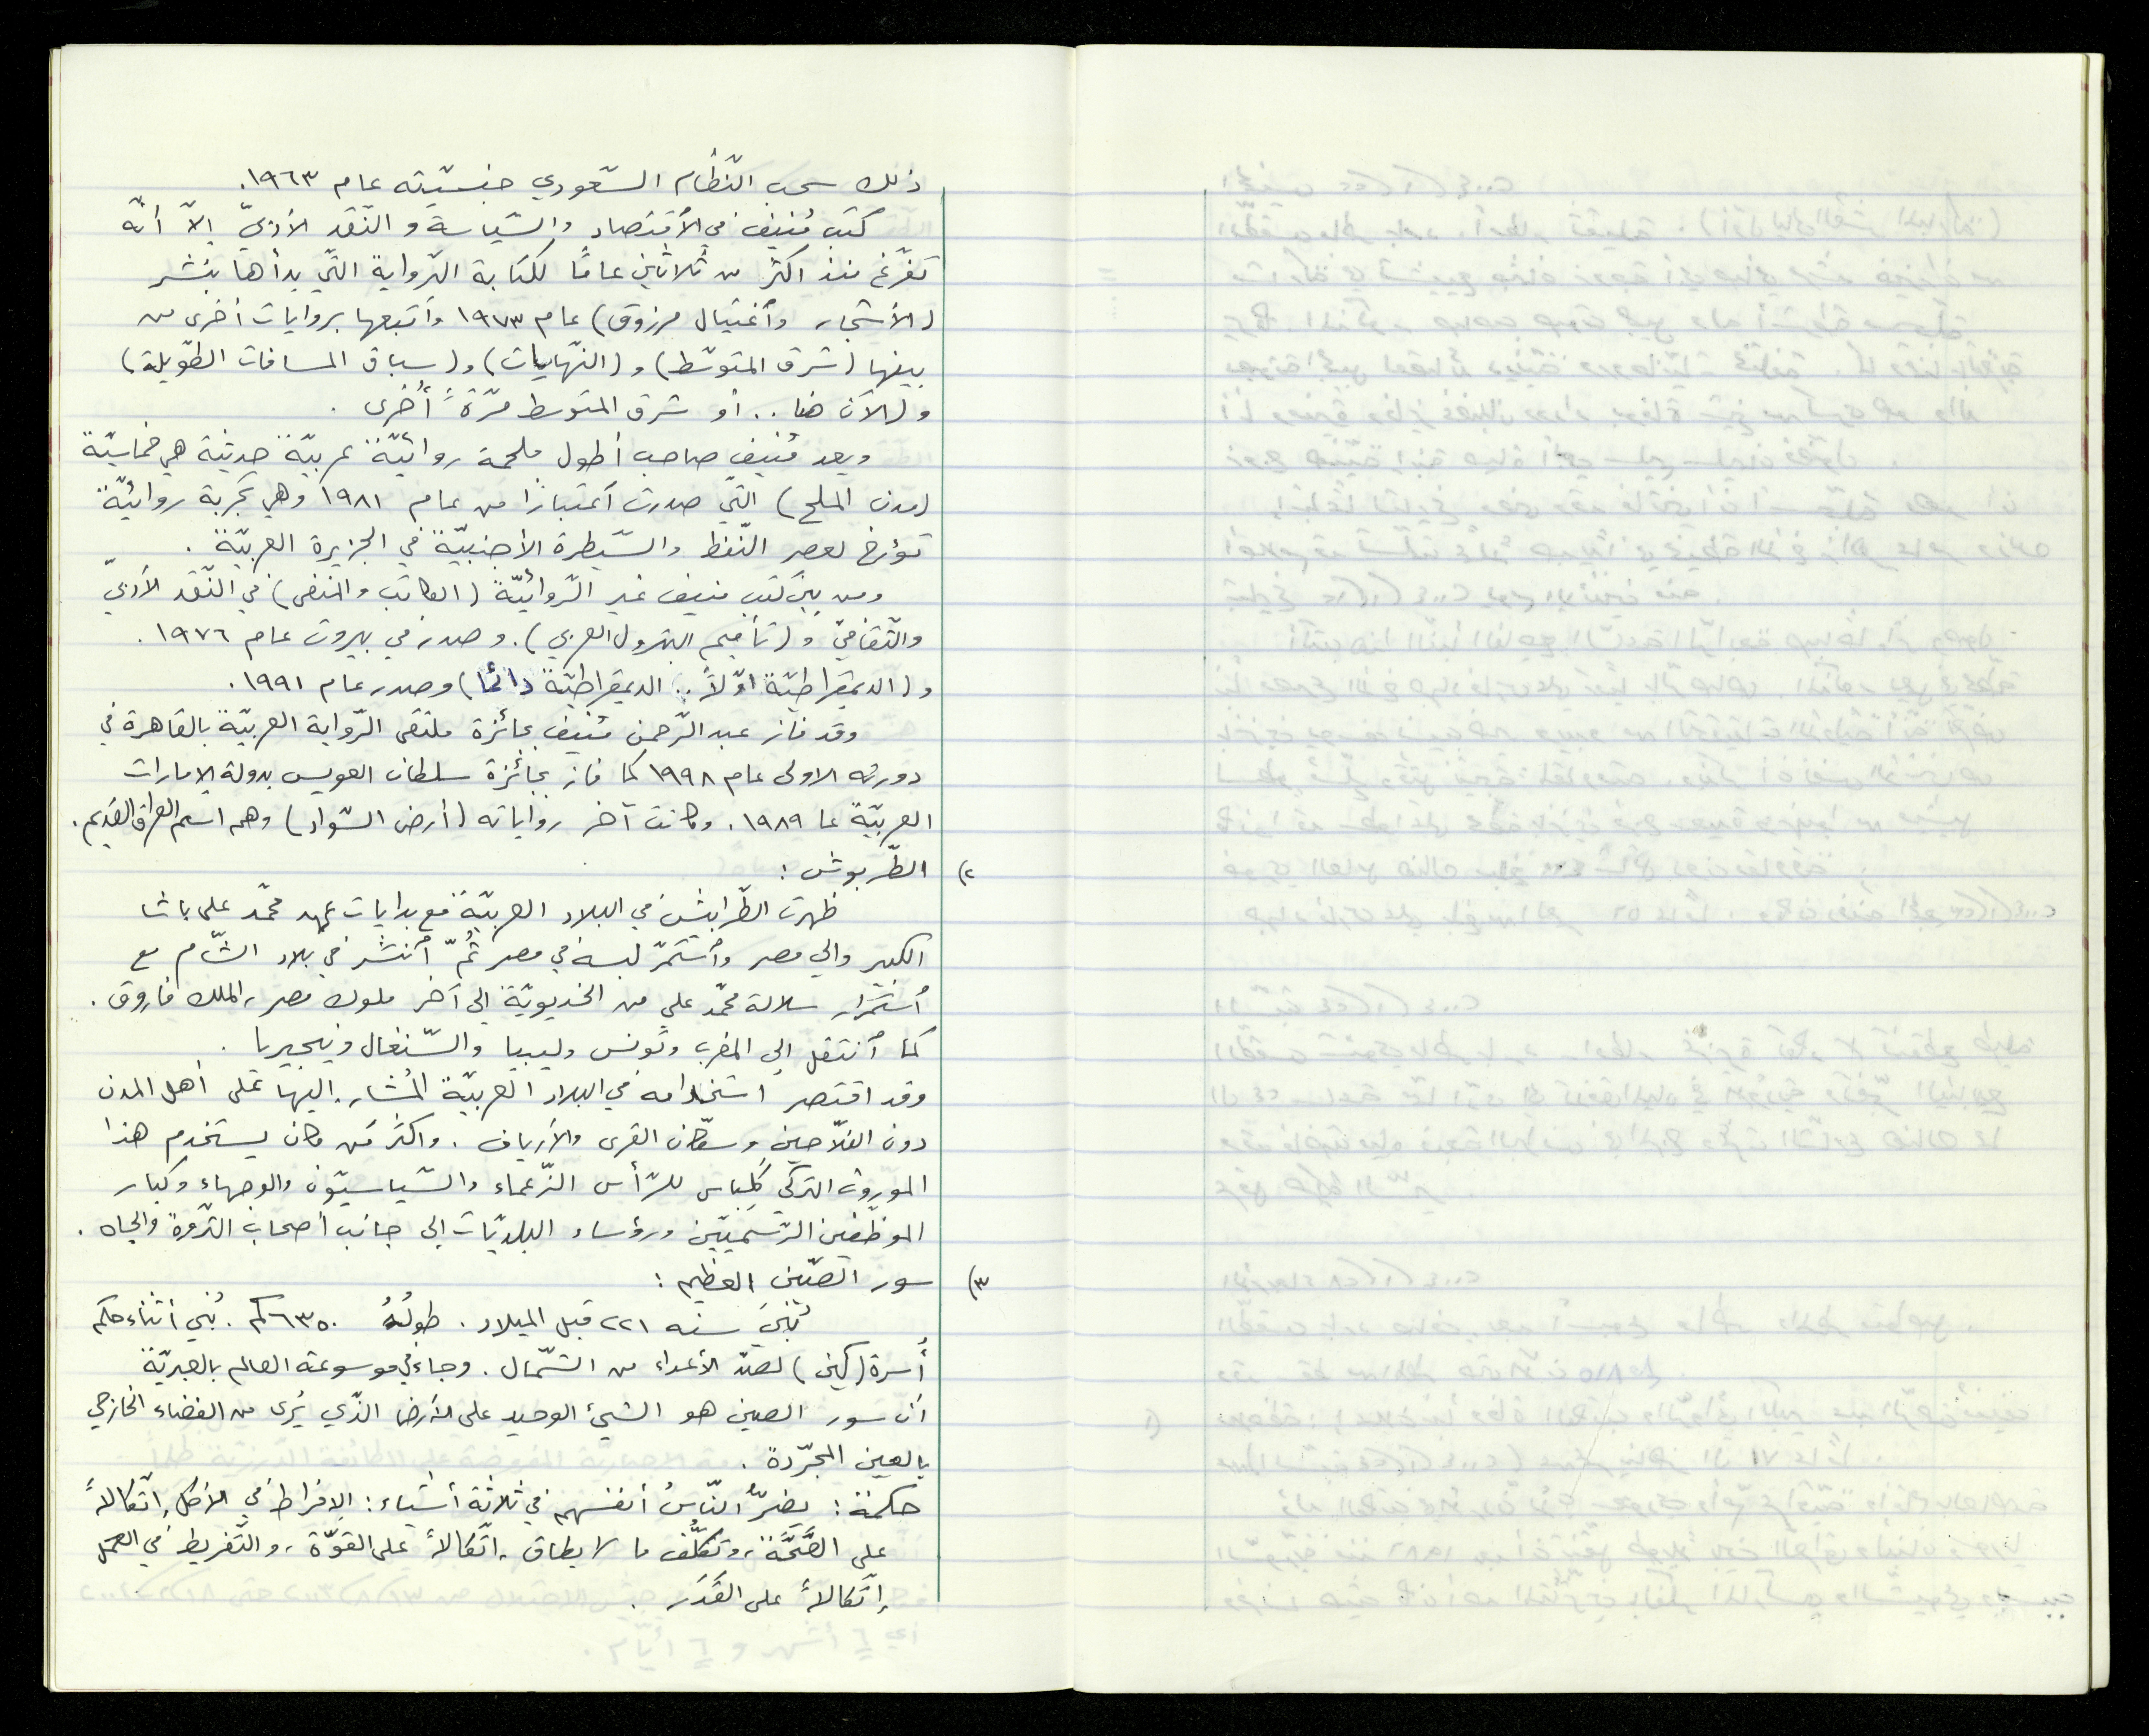 ذلك سحب النّظام السّعودي جنسيّته عام ١٩٦٣.
كتب مُنيف في الأقتصاد والسّياسة و النّقد الأدبيّ إلاّ أنّه
تفرّغ منذ اكثر من ثلاثين عامًا لكتابة الرّواية التّي بدأها بنشر
(الأشجار وأغتيال مرزوق) عام ١٩٧٣ وأتبعها بروايات أخرى من
بينها (شرق المتوسّط) و (النّهايات) و (سباق المسافات الطّويلة)
و(الآن هنا .. أو شرق المتوسط مرّةً أُخرى .
ويعد مُنيف صاحب أطول ملحمة روائيّة عربيّة حديثة هي خماسيّة
(مدن الملح) التّي صدرت أعتبارًا من عام ١٩٨١ وهي تجربة روائيّة
تؤرخ لعصر النّفط والسّيطرة الأجنبيّة في الجزيرة العربيّة .
ومن بين كتب منيف غير الرّوائيّة (الكاتب والمنفى) في النّقد الأدبيّ
والثّقافيّ و (تأميم البترول العربي). و صدر في بيروت عام ١٩٧٦ .
و (الديمقراطيّة اوّلاً .. الديمقراطيّة دائمًا) وصدر عام ١٩٩١ .
وقد فاز عبد الرّحمن مُنيف بجائزة ملتقى الرّواية العربيّة بالقاهرة في
دورته الاولى عام ١٩٩٨ كما فاز بجائزة سلطان العويس بدولة الإمارات
العربيّة عا ١٩٨٩ . وكانت آخر رواياته (أرض السّواد) وهم اسم العراق القديم .
٢) الطّربوش :
ظهرت الطّرابيش في البلاد العربيّة مع بدايات عهد محمّد علي باشا
الكبير والي مصر وأستمرّ لبسه في مصر ثُمّ أنتشر في بلاد الشّام مع
أستمرار سلالة محمّد علي من الخديويّة الى آخر ملوك مصر، الملك فاروق .
كما أنتقل الى المغرب وتونس وليبيا والسّنغال ونيجيريا .
وقد اقتصر استخدامه في البلاد العربيّة المُشار إليها على أهل المدن
دون الفلاّحين وسكّان القرى والأرياف . واكثر من كان يستخدم هذا
الموروث التركي كلباس للرّأس الزّعماء والسّياسيّون والوجهاء وكبار
الموظّفين الرّسميّين ورؤساء البلديّات إلى جانب أصحاب الثّروة والجاه .
٣) سور الصّين العظيم :
بُنيَ سنه ٢٢١ قبل الميلاد . طولُهُ ٦٣٥٠ كم . بُني أثناء حكم
أُسرة (كين) لصدّ الأعداء من الشّمال . وجاء في موسوعة العالم بالعبريّة
انّ سور الصين هو الشيئ الوحيد على الأرض الذّي يُرى من الفضاء الخارجي
بالعين المجرّدة .
حكمة : يضرُّ النّاسُ أنفسهم في ثلاثة أشياء : الإفراط في الأكل إتّكالاً
على الصّحّة ، وتكلّف ما لا يطاق ، اتّكالاً على القوّة ، والتّفريط في العمل
إتّكالاً على القَدَر .